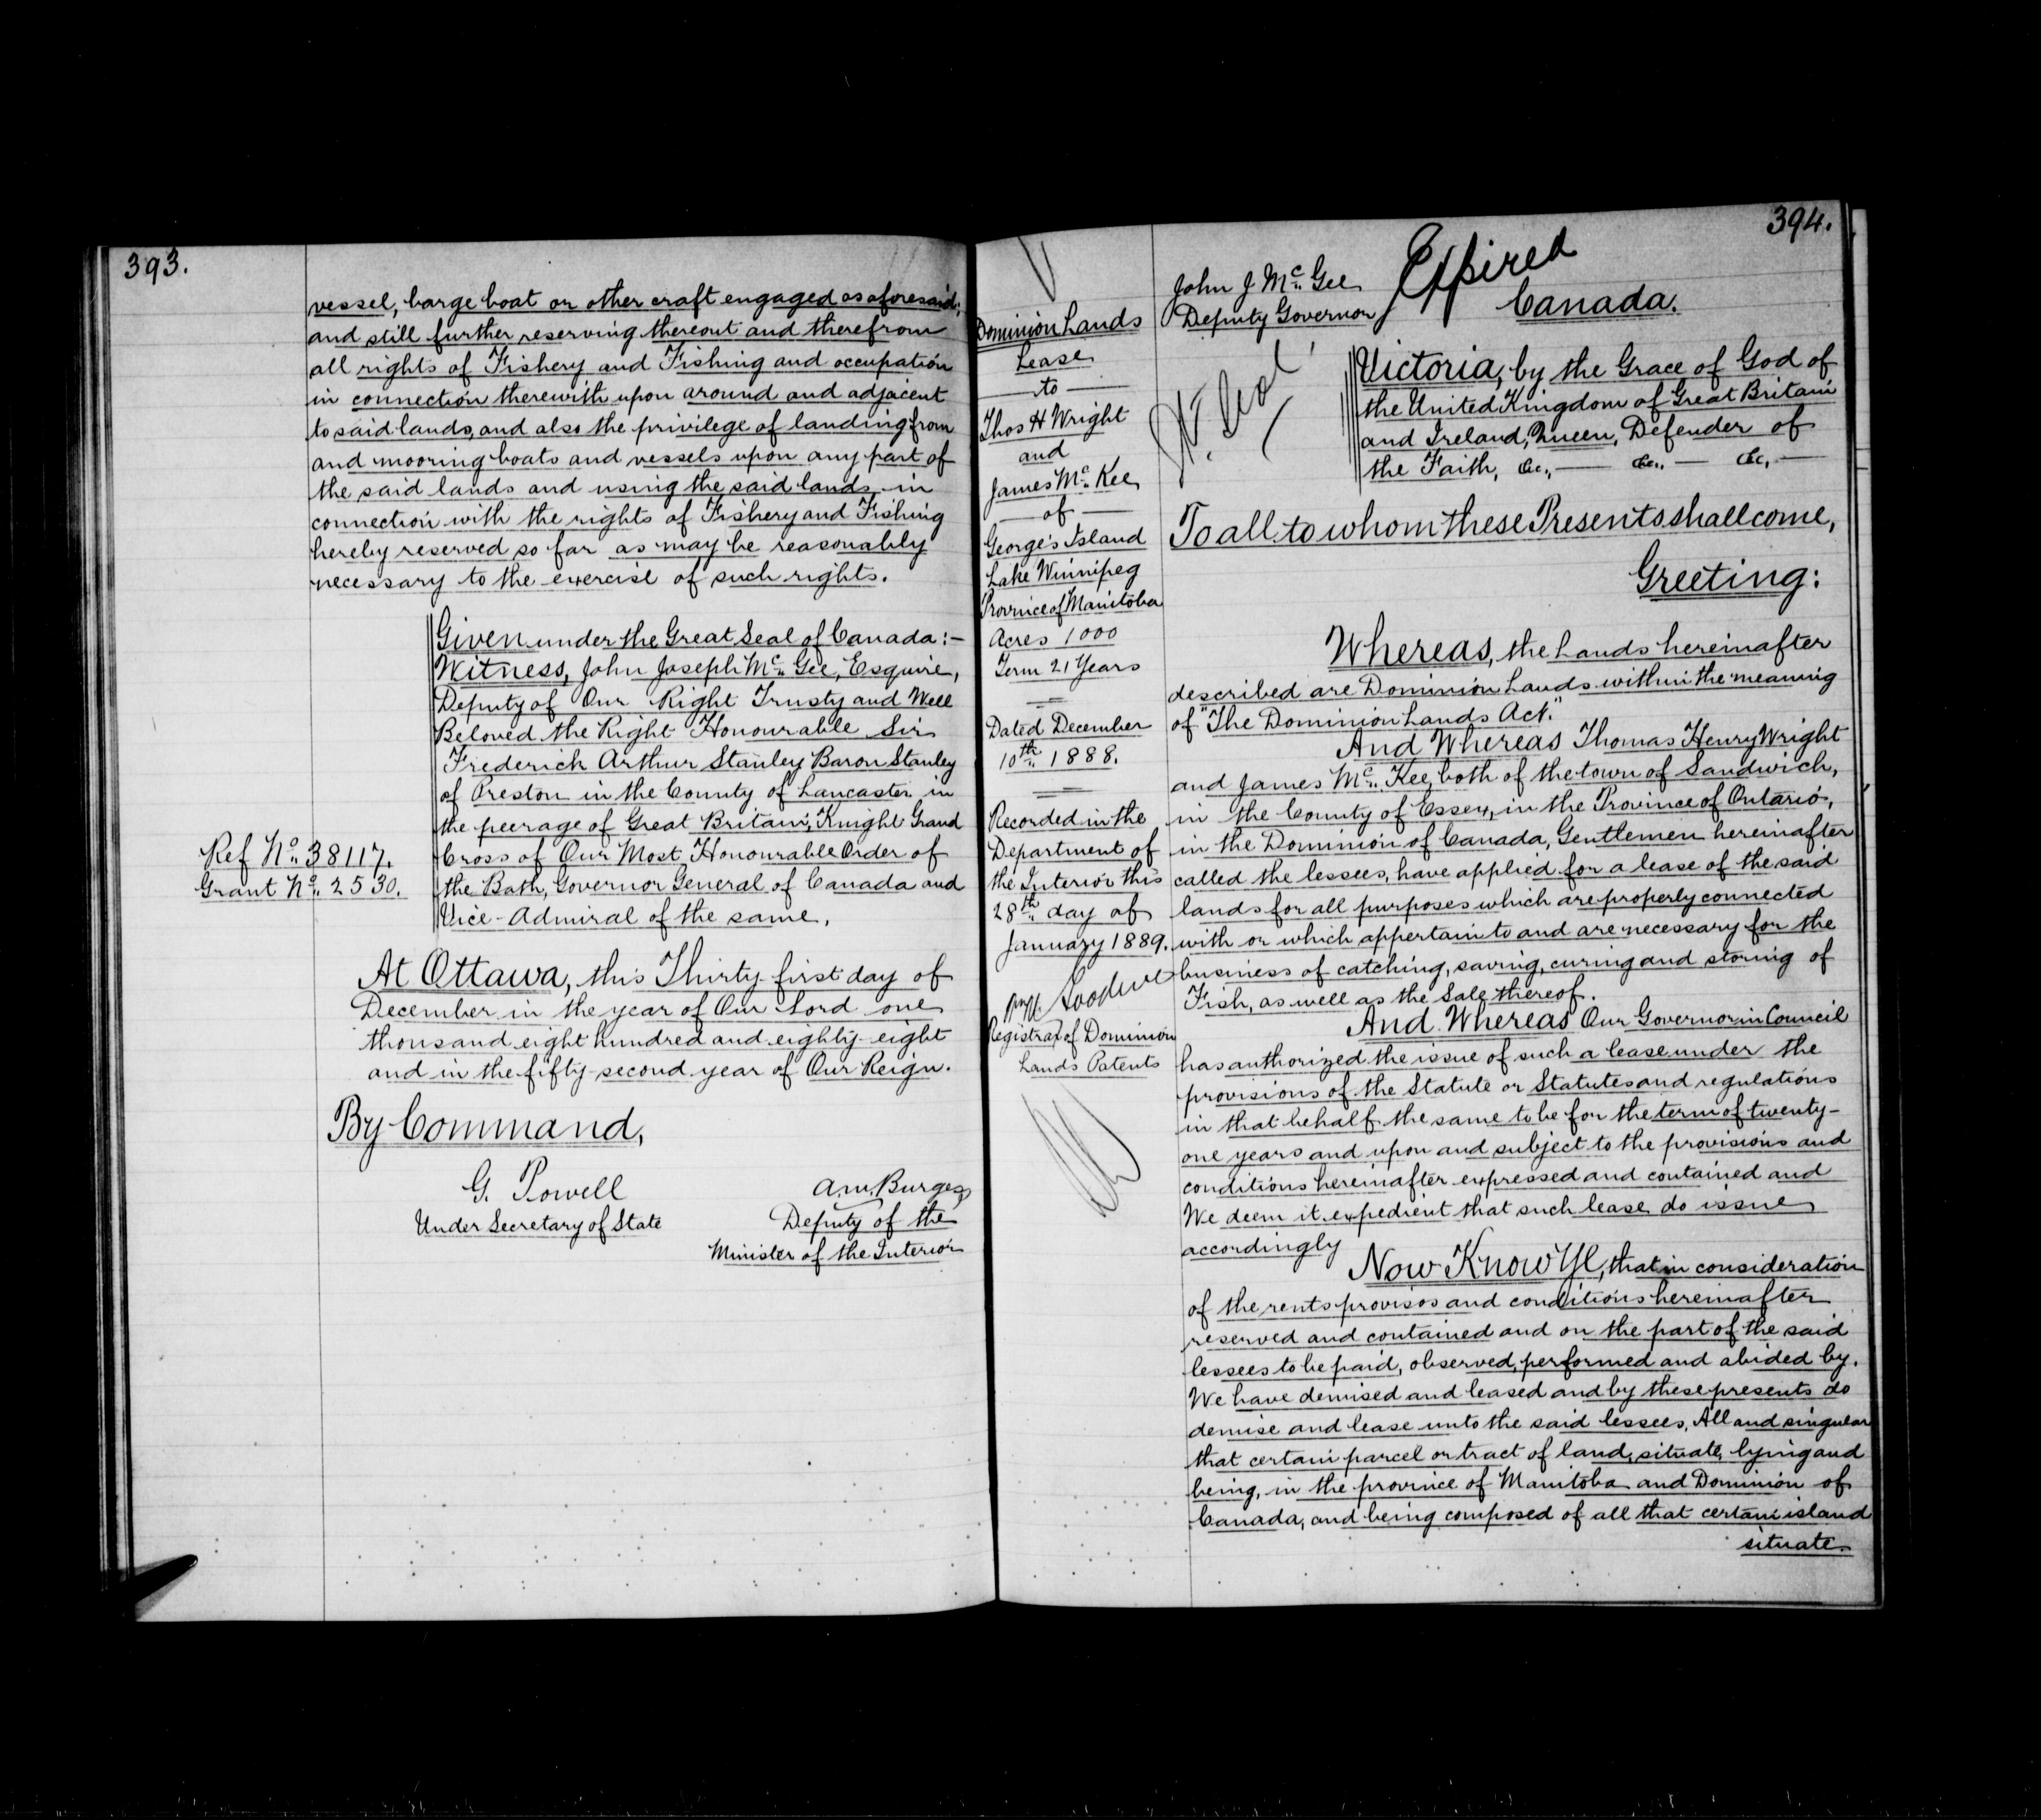 393.
vessel, barge boat or other craft engaged as aforesaid;
and still further reserving thereout and therefrom
all rights of Fishery and Fishing and occupation
in connection therewith upon around and adjacent
to said lands, and also the privilege of landing from
and mooring boats and vessels upon any part of
the said lands and using the said lands in
connection with the rights of Fishery and Fishing
hereby reserved so far as may be reasonably
necessary to the exercise of such rights.
Given under the Great Seal of Canada:-
Witness, John Joseph Mc Gee, Esquire,
Deputy of Our Right Trusty and Well
Beloved the Right Honourable Sir
Frederick Arthur Stanley Baron Stanley
of Preston in the County of Lancaster in
the peerage of Great Britain, Knight Grand
Cross of Our Most Honourable Order of
the Bath, Governor General of Canada and
Vice-Admiral of the same.
Ref No. 38117.
Grant No. 2530.
At Ottawa, this Thirty-first day of
December in the year of Our Lord one
thousand eight hundred and eighty-eight
and in the fifty-second year of Our Reign.
By Command,
G. Powell
Under Secretary of State
A.M. Burgess
Deputy of the
Minister of the Interior
394.
Dominion Lands
Lease
to
Thos H Wright
and
James Mc Kee
of
George's Island
Lake Winnipeg
Province of Manitoba
Acres 1000
Term 21 Years
Dated December
10th 1888.
Recorded in the
Department of
the Interior this
28th day of
January 1889.
Registrar of Dominion
Lands Patents
John J Mc Gee
Deputy Governor
Expired
Canada.
Victoria, by the Grace of God of
the United Kingdom of Great Britain
and Ireland, Queen, Defender of
the Faith, &c., — &c., — &c, —
To all to whom these Presents shall come,
Greeting:
Whereas, the Lands hereinafter
described are Dominion Lands within the meaning
of "The Dominion Lands Act."
And Whereas Thomas Henry Wright
and James Mc Kee, both of the town of Sandwich,
in the County of Essex, in the Province of Ontario,
in the Dominion of Canada, Gentlemen hereinafter
called the lessees, have applied for a lease of the said
lands for all purposes which are properly connected
with or which appertain to and are necessary for the
business of catching, saving, curing and storing of
Fish, as well as the Sale thereof.
And Whereas Our Governor in Council
has authorized the issue of such a lease under the
provisions of the Statute or Statutes and regulations
in that behalf the same to be for the term of twenty-
one years and upon and subject to the provisions and
conditions hereinafter expressed and contained and
We deem it expedient that such lease do issue
accordingly
Now Know Ye, that in consideration
of the rents provisos and conditions hereinafter
reserved and contained and on the part of the said
lessees to be paid, observed, performed and abided by.
We have demised and leased and by these presents do
demise and lease unto the said lessees, All and singular
that certain parcel or tract of land, situate, lying and
being, in the province of Manitoba and Dominion of
Canada, and being composed of all that certain island
situate